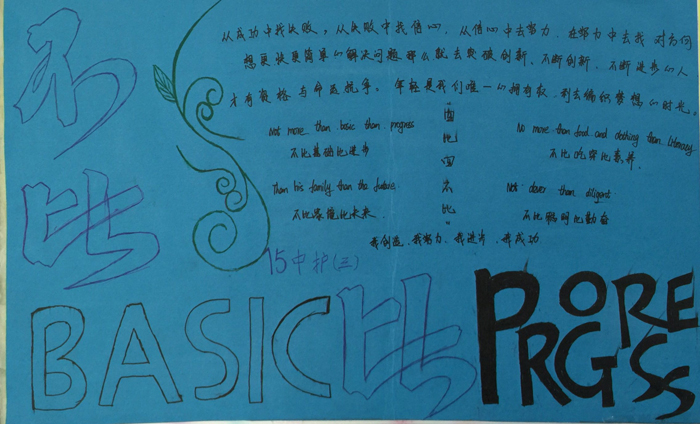 不比
从成功中找失败，从失败中找信心，从信心中去努力，在努力中去找对方向
想更快更简单的解决问题那么就去突破创新、不断创新、不断进步的人
才有资格与命运抗争。年轻是我们唯一的拥有权，到去编织梦想的时光。
"四比四不比"
Not more than basic than progress
不比基础比进步
No more than food and clothing than literacy
不比吃穿比素养
Than his family than the future.
不比家庭比未来
Not clever than diligent
不比聪明比勤奋
我创造、我努力、我进步、我成功
15中护(三)
BASIC比PROGRESS